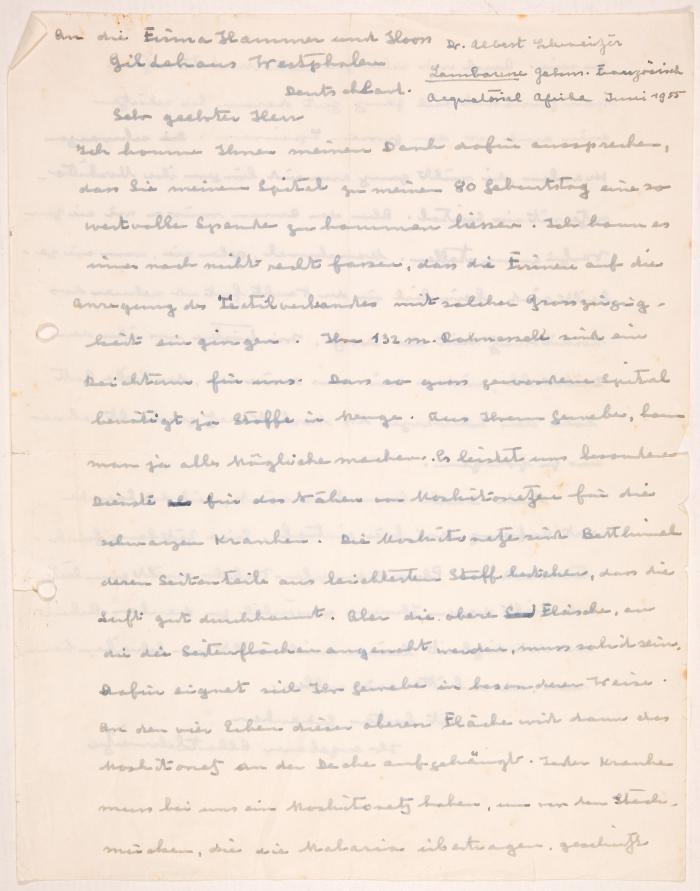 An die Firma Hammer und Hoos
Gildehaus Westphalen
Deutschland.
Dr. Albert Schweitzer
Lambarene Gabun. Französisch
Aequatorial Afrika Juni 1955
Sehr geehrter Herr
Ich komme Ihnen meinen Dank dafür aussprechen,
dass Sie meinem Spital zu meinem 80 Geburtstag eine so
wertvolle Spende zukommen liessen. Ich kann es
immer noch nicht recht fassen, dass die Firmen auf die
Anregung des Textilverbandes mit solcher Grosszügig-
keit eingingen. Ihre 132 m. sind ein
Reichtum für uns. Das so gross gewordene Spital
benötigt ja Stoffe in Menge. Aus Ihrem Gewebe, kann
man ja alles Mögliche machen. Es leistet uns besondere
Dienste für das Nähen von Moskitonetzen für die
schwarzen Kranken. Die Moskitonetze sind Betthimmel
deren Seitenteile aus leichtestem Stoff bestehen, dass die
Luft gut durchkommt. Aber die obere Fläche, an
die die Seitenflächen angenäht werden, muss solid sein.
Dafür eignet sich Ihr Gewebe in besonderer Weise.
An den vier Ecken dieser oberen Fläche wird dann das
Moskitonetz an der Decke aufgehängt. Jeder Kranke
muss bei uns ein Moskitonetz haben, um von den Stech-
mücken, die die Malaria übertragen, geschützt